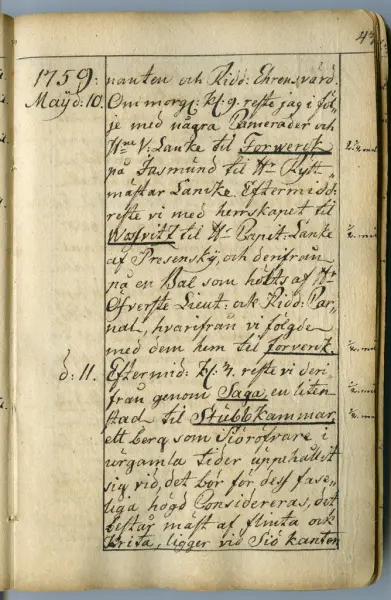 43
1759: nanten och Ridd: Ehrensvärd.
Mayd: 10. Om morg: kl: 9. reste jag i föl-
je med några Camerader och
H:ne V: Lanke til Forwerck
på Jasmund til Hr Rytt-
mästar Lancke. Eftermidd:
reste vi med herrskapet til
til Hr Capit: Lanke
af Presensky, och derifrån
på en Bal som hölts af Hr
Öfverste Lieut: och Ridd: Car-
nal, hvarifrån vi fölgde
med dem hem til forverk.
d: 11. Eftermid: kl: 3. reste vi deri-
från genom Saga, en liten
stad til Stubbkammar,
ett berg som Siöröfvare i
urgamla tider uppehållit
sig vid, det bör för dess fase-
liga högd Considereras, det
består mäst af flinta och
Krita, ligger vid Siö kanten